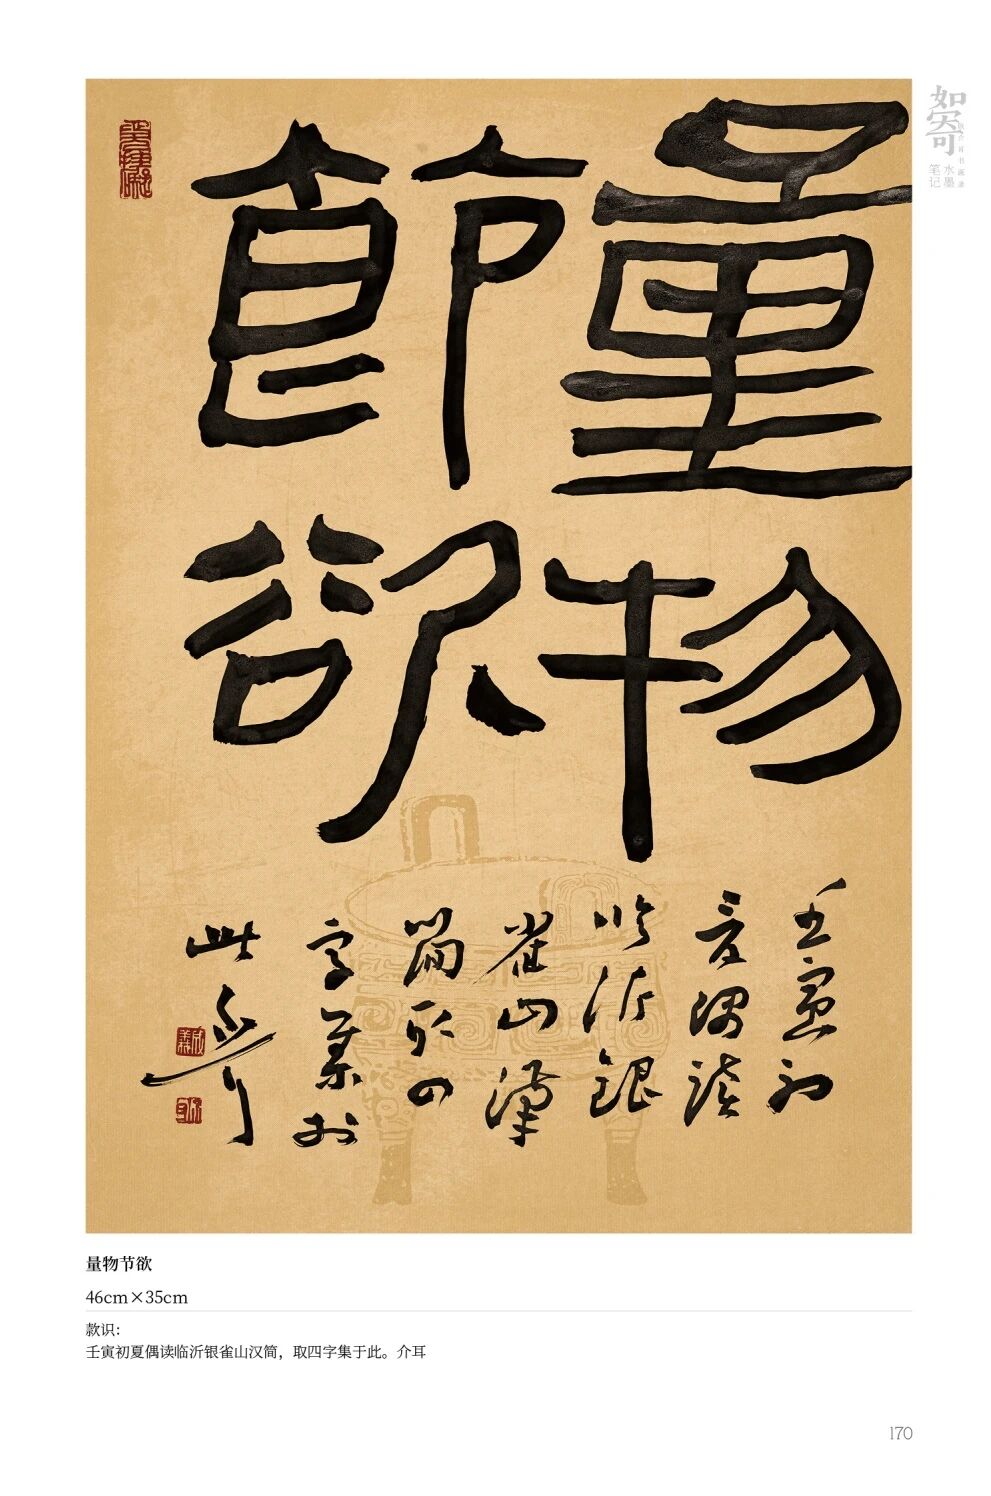 量物
節欲
壬寅初
夏偶讀
临沂銀
雀山漢
简取四
字集於
此 介耳
如寄
水墨
笔记
量物节欲
46cm×35cm
款识：
壬寅初夏偶读临沂银雀山汉简，取四字集于此。介耳
170